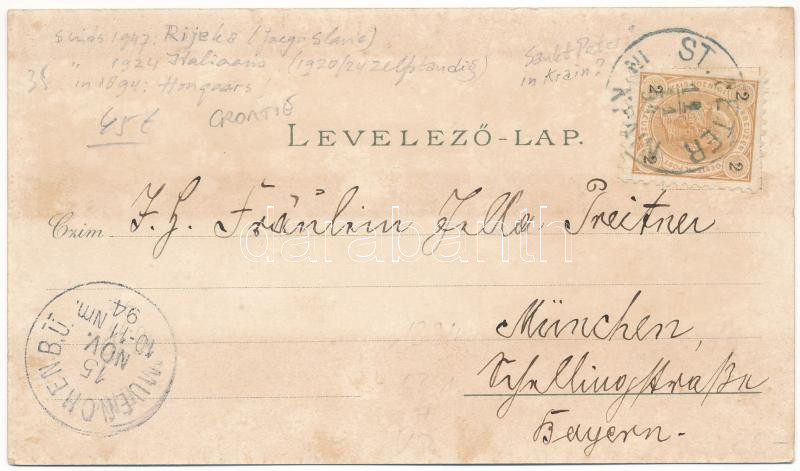 sinds 1947: Rijeka (Joego Slavie)
" 1924 Italiaans (1920/24 zelfstandig)
in 1894: Hongaars!
35
45t
CROATIË
Sankt Peter
in Krain?
ST. PETER
IN KRAIN
2 2 2 2
LEVELEZŐ-LAP.
Czim F. H. Fräulein Zella Preitner
München,
Schellingstraße
Bayern.
MUENCHEN B.Ü.
15
NOV.
10-11 Nm.
94
darabanth